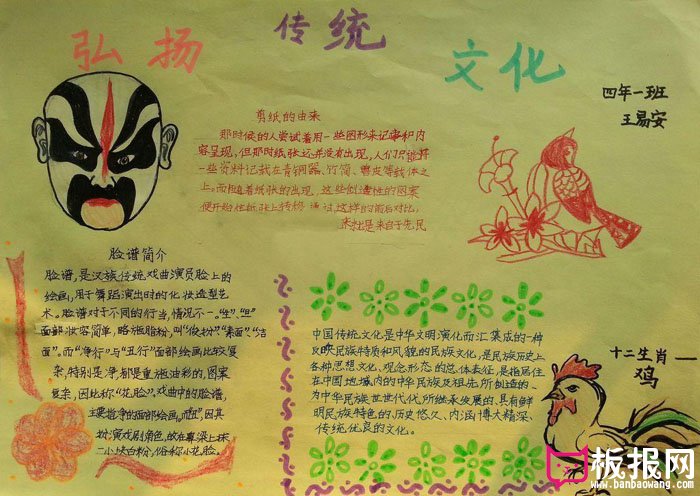 弘扬 传统 文化
四年一班
王易安
剪纸的由来
那时候的人尝试着用一些图形来记事和内
容呈现，但那时纸张还并没有出现，人们只能将
一些资料记载在青铜器、竹简、兽皮等载体之
上。而随着纸张的出现，这些创造性的图案
便开始在纸张上转移
来都是来自于先民
脸谱简介
脸谱，是汉族传统戏曲演员脸上的
绘画，用于舞蹈演出时的化妆造型艺
术。脸谱对于不同的行当，情况不一。"生"、"旦"
面部妆容简单，略施脂粉，叫"俊扮"、"素面"、"洁
面"。而"净行"与"丑行"面部绘画比较复
杂，特别是净，都是重施油彩的，图案
复杂，因此称"花脸"。戏曲中的脸谱，
主要指净的面部绘画。而"丑"，因其
扮演戏剧角色，故在鼻梁上抹
一小块白粉，俗称小花脸。
中国传统文化是中华文明演化而汇集成的一种
反映民族特质和风貌的民族文化，是民族历史上
各种思想文化、观念形态的总体表征，是指居住
在中国地域内的中华民族及祖先所创造的、
为中华民族世世代代所继承发展的、具有鲜
明民族特色的、历史悠久、内涵博大精深、
传统优良的文化。
十二生肖——
鸡
板报网
www.banbaowang.com